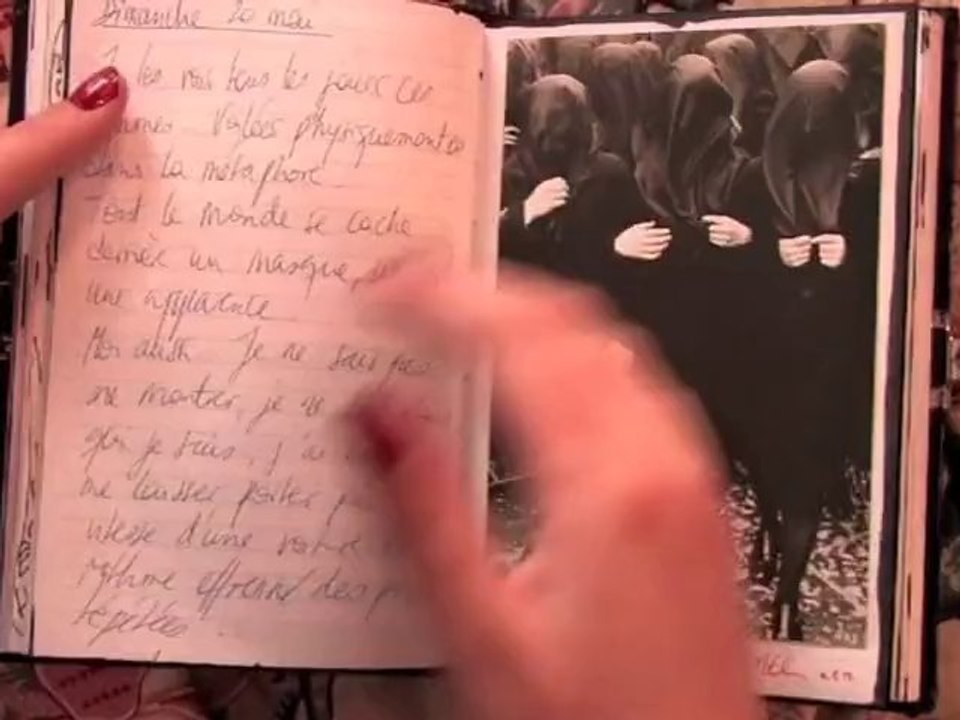 Dimanche 20 mai
les vois tous les jours ces
Voilées physiquement ou
dans la métaphore
Tout le monde se cache
derrière un masque,
une apparence
Moi aussi. Je ne sais pas
me montrer, je
qui je suis, j'ai
me laisser porter
vitesse d'une voiture
rythme effréné des
répétées.